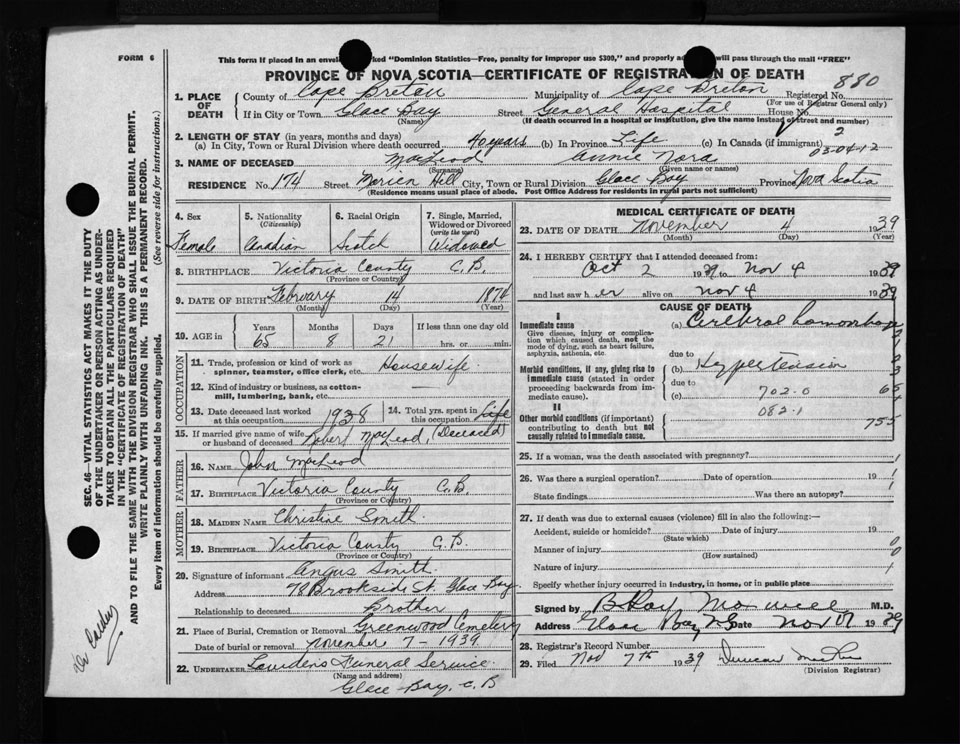 FORM 6
This form if placed in an envel ked "Dominion Statistics—Free, penalty for improper use $300," and properly a will pass through the mail "FREE"
PROVINCE OF NOVA SCOTIA—CERTIFICATE OF REGISTRATION OF DEATH
880
1. PLACE OF DEATH
County of Cape Breton Municipality of Cape Breton Registered No.
(For use of Registrar General only)
If in City or Town Glace Bay Street General Hospital House No.
(Name) (If death occurred in a hospital or institution, give the name instead of street and number)
2. LENGTH OF STAY (in years, months and days)
(a) In City, Town or Rural Division where death occurred 40 years (b) In Province Life (c) In Canada (if immigrant) 2
03-04-12
3. NAME OF DECEASED MacLeod Annie Nora
(Surname) (Given name or names)
RESIDENCE No. 174 Street Hill City, Town or Rural Division Glace Bay Province Nova Scotia
(Residence means usual place of abode. Post Office Address for residents in rural parts not sufficient)
4. Sex
Female
5. Nationality (Citizenship)
Canadian
6. Racial Origin
Scotch
7. Single, Married, Widowed or Divorced (write the word)
Widowed
8. BIRTHPLACE Victoria County C.B.
(Province or Country)
9. DATE OF BIRTH February 14 1874
(Month) (Day) (Year)
10. AGE in Years Months Days If less than one day old
65 8 21 hrs. or min.
OCCUPATION
11. Trade, profession or kind of work as spinner, teamster, office clerk, etc. Housewife
12. Kind of industry or business, as cotton-mill, lumbering, bank, etc.
13. Date deceased last worked at this occupation 1938
14. Total yrs. spent in this occupation life
15. If married give name of wife or husband of deceased Robert MacLeod, (Deceased)
FATHER
16. NAME John MacLeod
17. BIRTHPLACE Victoria County C.B.
(Province or Country)
MOTHER
18. MAIDEN NAME Christine Smith
19. BIRTHPLACE Victoria County C.B.
(Province or Country)
20. Signature of informant Angus Smith
Address 78 Brookside St. Glace Bay
Relationship to deceased Brother
21. Place of Burial, Cremation or Removal Greenwood Cemetery
Date of burial or removal November 7 - 1939
22. UNDERTAKER Funeral Service
(Name and address)
Glace Bay, C.B
MEDICAL CERTIFICATE OF DEATH
23. DATE OF DEATH November 4 1939
(Month) (Day) (Year)
24. I HEREBY CERTIFY that I attended deceased from:
Oct 2 1939 to Nov 4 1939
and last saw her alive on Nov 4 1939
CAUSE OF DEATH
I
Immediate cause
Give disease, injury or complication which caused death, not the mode of dying, such as heart failure, asphyxia, asthenia, etc.
(a) Cerebral
due to
Morbid conditions, if any, giving rise to immediate cause (stated in order proceeding backwards from immediate cause).
(b) Hypertension
due to
(c) 702.0
082.1
II
Other morbid conditions (if important) contributing to death but not causally related to immediate cause.
755
25. If a woman, was the death associated with pregnancy?
26. Was there a surgical operation? Date of operation 19
State findings Was there an autopsy?
27. If death was due to external causes (violence) fill in also the following:—
Accident, suicide or homicide? Date of injury 19
(State which)
Manner of injury
(How sustained)
Nature of injury
Specify whether injury occurred in industry, in home, or in public place
Signed by M.D.
Address Glace Bay NS Date Nov 1939
28. Registrar's Record Number
29. Filed Nov 7th 1939 Duncan
(Division Registrar)
SEC. 46—VITAL STATISTICS ACT MAKES IT THE DUTY
OF THE UNDERTAKER OR PERSON ACTING AS UNDER-
TAKER TO OBTAIN ALL THE PARTICULARS REQUIRED
IN THE "CERTIFICATE OF REGISTRATION OF DEATH"
AND TO FILE THE SAME WITH THE DIVISION REGISTRAR WHO SHALL ISSUE THE BURIAL PERMIT.
WRITE PLAINLY WITH UNFADING INK. THIS IS A PERMANENT RECORD.
Every item of information should be carefully supplied. (See reverse side for instructions.)